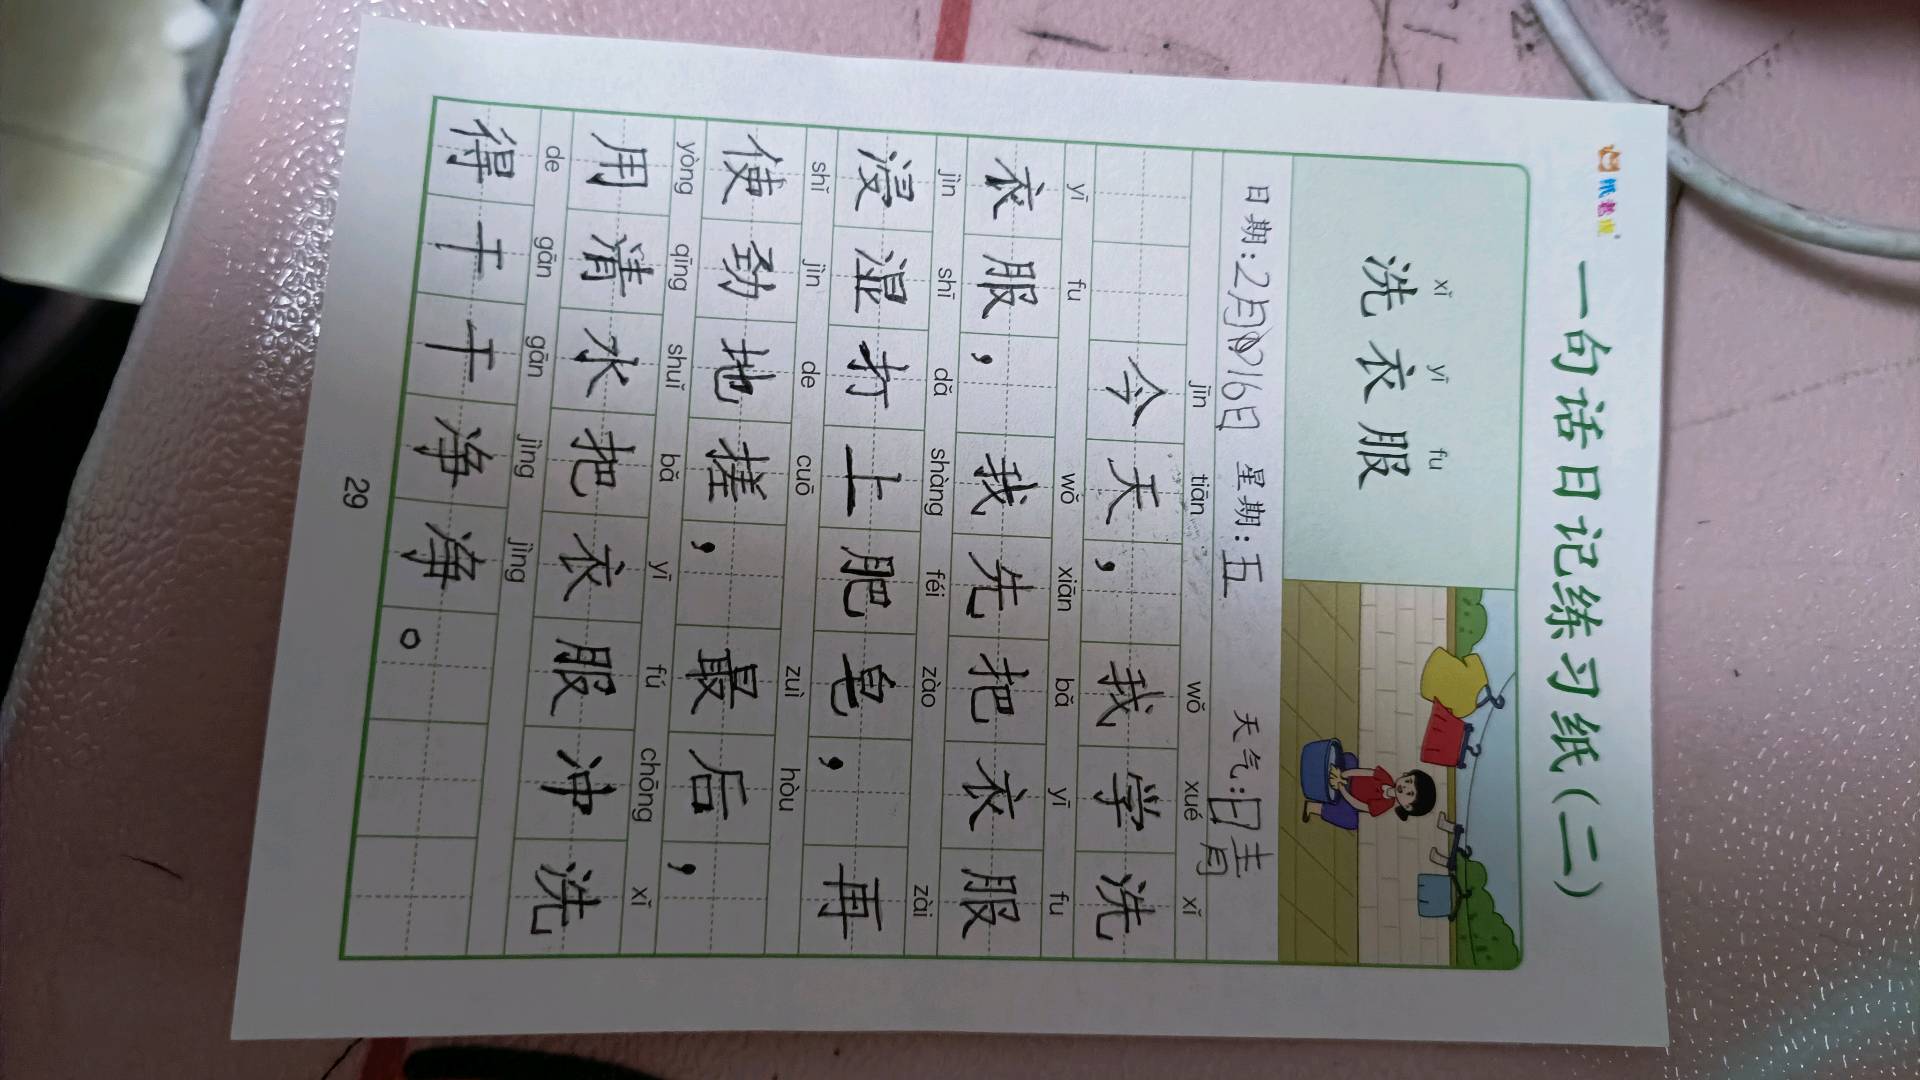 纸老虎
一句话日记练习纸(二)
xǐ yī fu
洗衣服
日期:2月16日 星期:五 天气:晴
jīn tiān wǒ xué xǐ
今天,我学洗
yī fu wǒ xiān bǎ yī fu
衣服,我先把衣服
jìn shī dǎ shàng féi zào zài
浸湿打上肥皂,再
shǐ jìn de cuō zuì hòu
使劲地搓,最后,
yòng qīng shuǐ bǎ yī fú chōng xǐ
用清水把衣服冲洗
de gān gān jìng jìng
得干干净净。
29